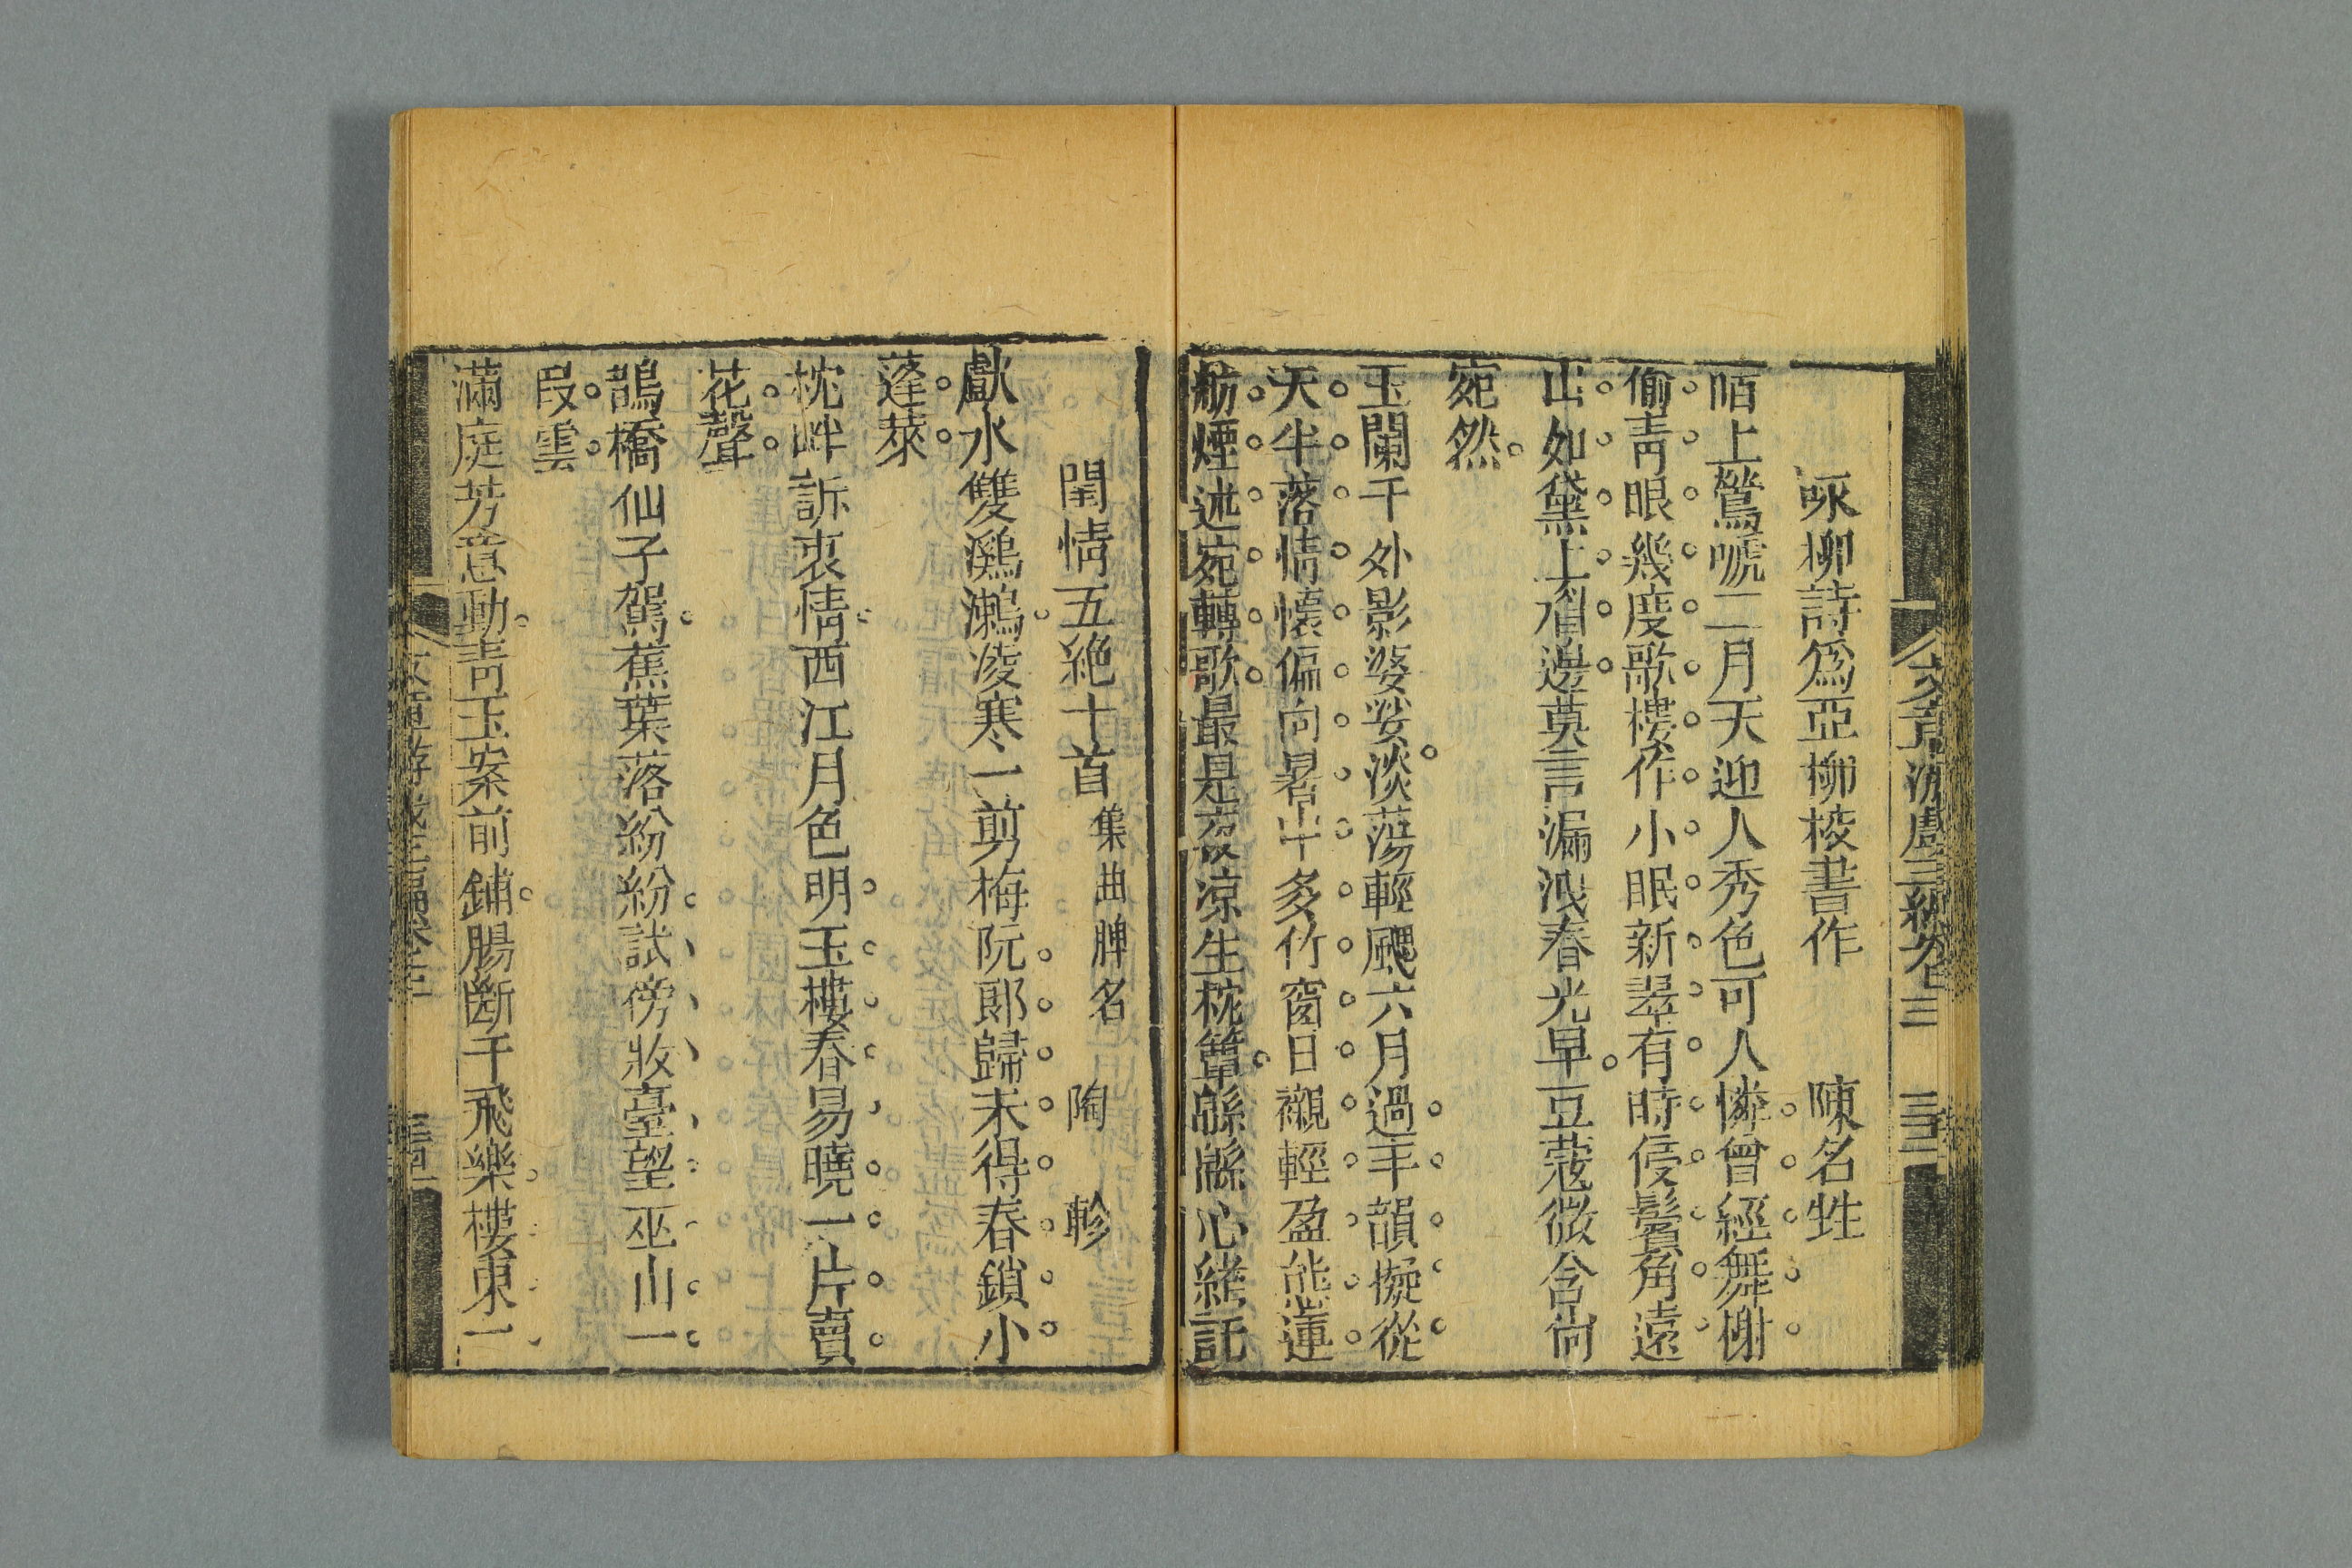 文章游戲三編卷三 三二
咏柳詩爲亞柳校書作 陳名甡
陌上鶯啼二月天迎人秀色可人憐曾經舞榭
偷靑眼幾度歌樓作小眠新翠有時侵鬢角遠
山如黛上眉邊莫言漏洩春光早豆蔻微含尚
宛然
玉闌干外影婆娑淡蕩輕颸六月過半韻擬從
天半落情懷偏向暑中多竹窗日襯輕盈態蓮
舫煙述宛轉歌最是夜凉生枕簟緜緜心緒託
閨情五絶十首集曲牌名 陶軫
獻水雙鸂𪆟凌寒一剪梅阮郞歸未得春鎖小
蓬萊
枕畔訴衷情西江月色明玉樓春易曉一片賣
花聲
鵲橋仙子駕蕉葉落紛紛試傍妝臺望巫山一
段雲
滿庭芳意動靑玉案前鋪腸斷千飛樂樓東一